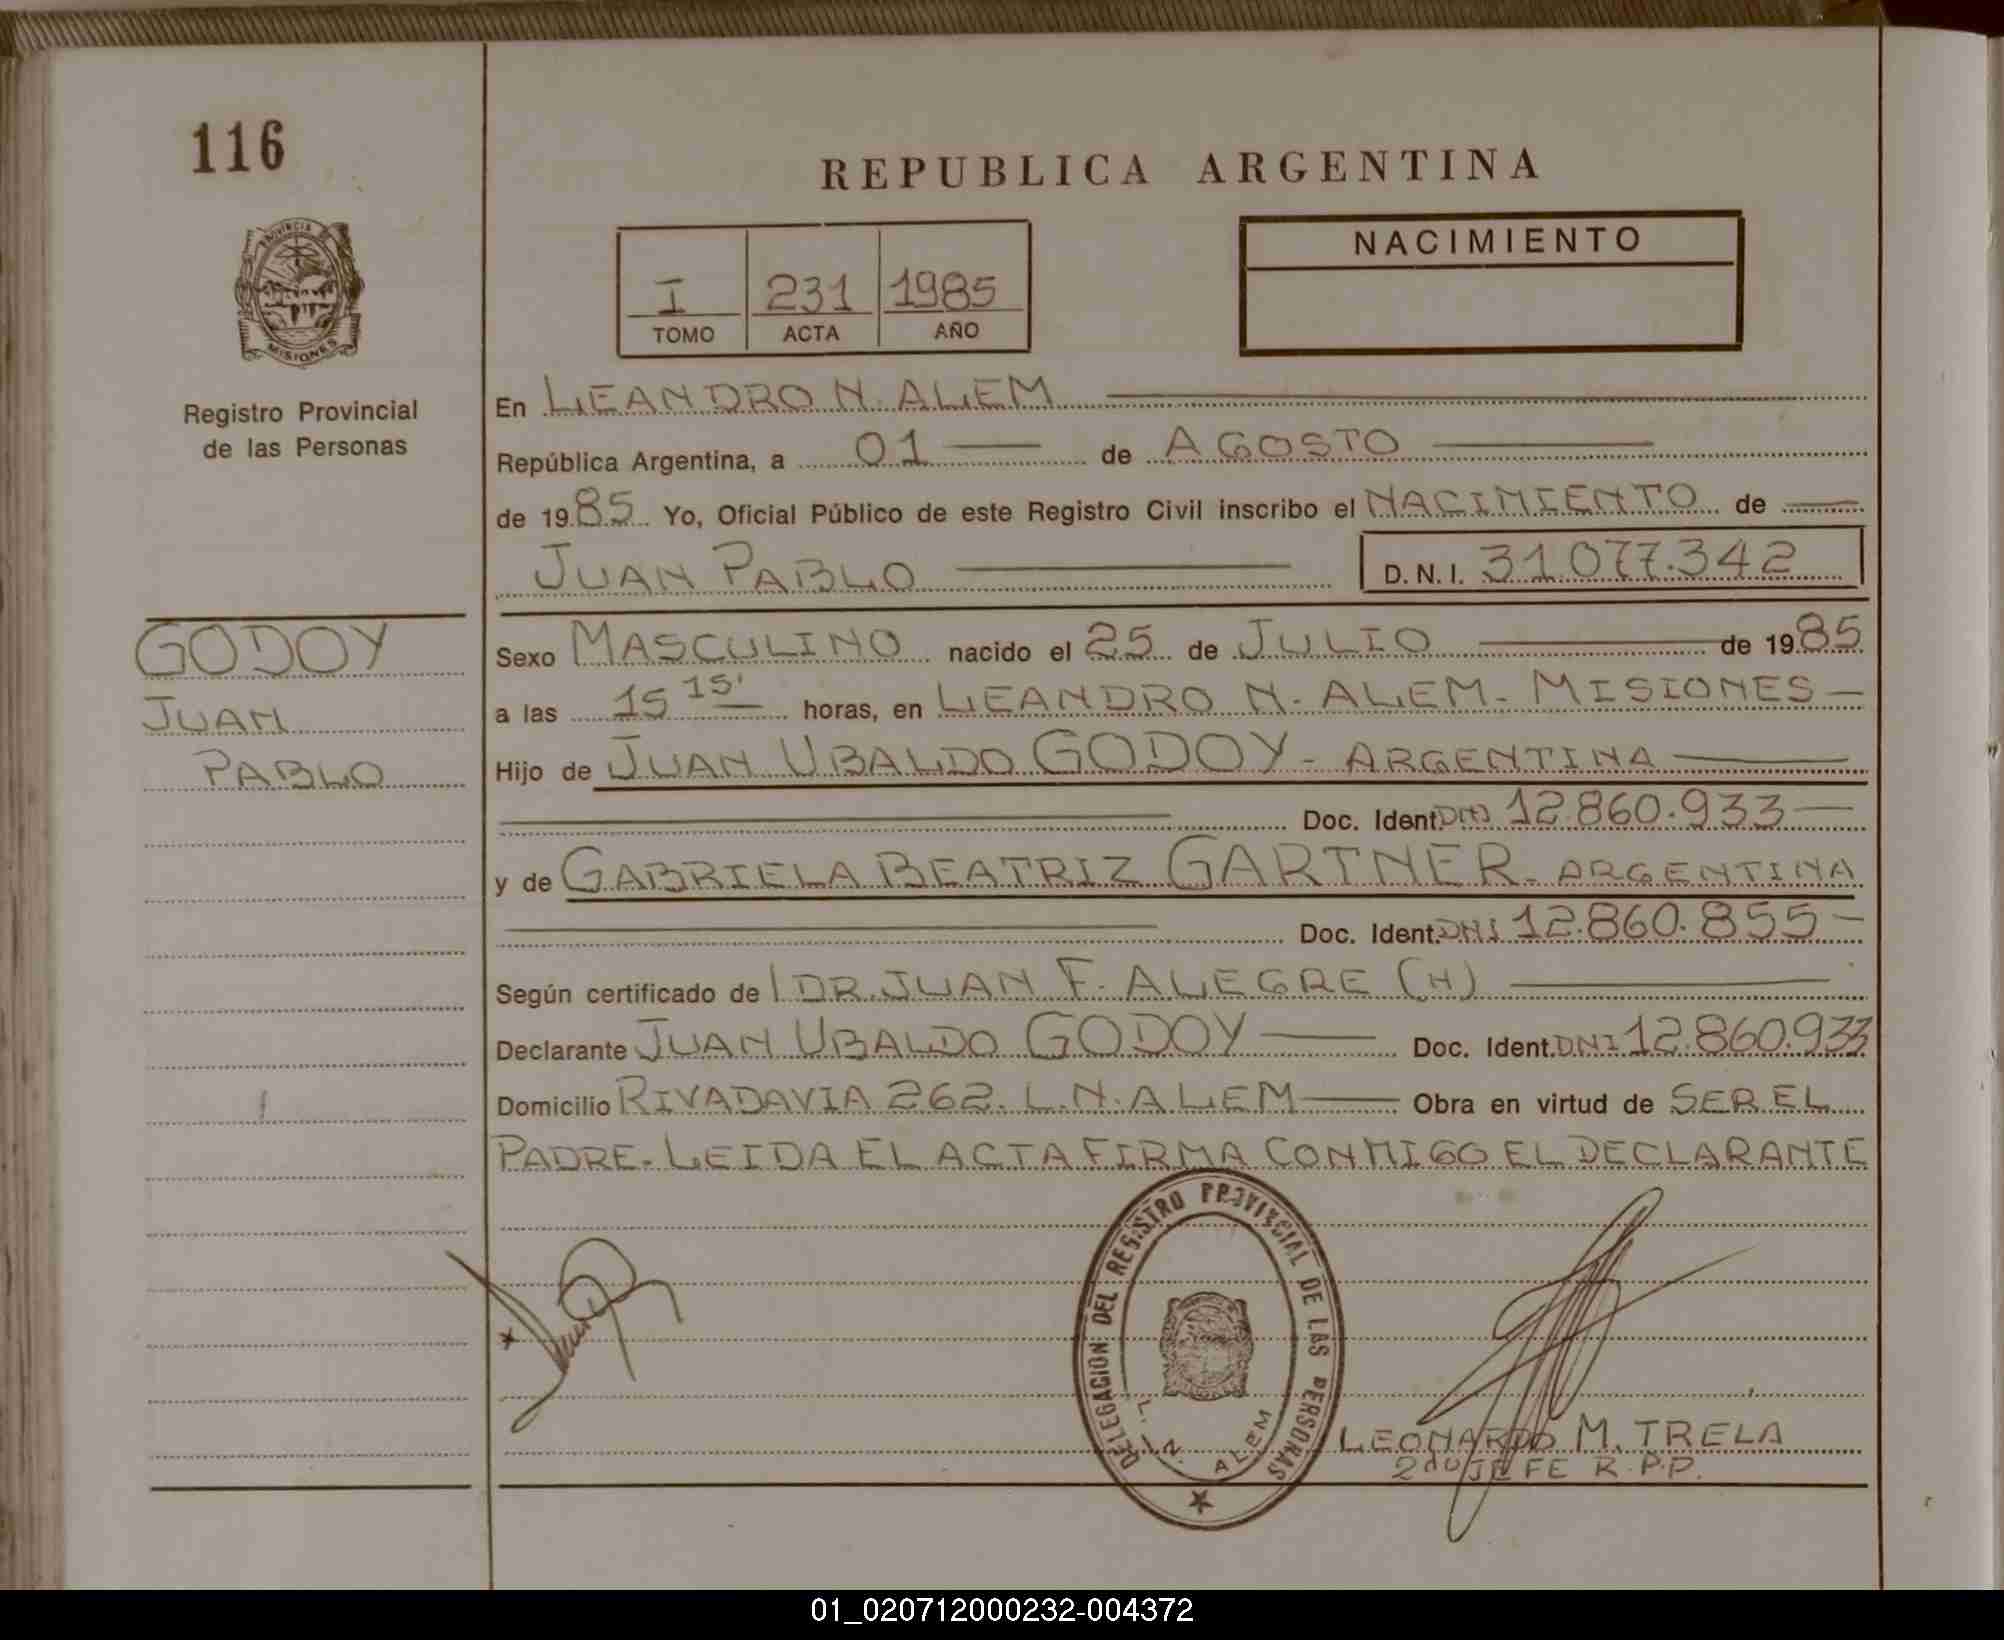 116
REPUBLICA ARGENTINA
PROVINCIA DE
MISIONES
Registro Provincial
de las Personas
I 231 1985
TOMO ACTA AÑO
NACIMIENTO
En LEANDRO N. ALEM
República Argentina, a 01 de AGOSTO
de 1985 Yo, Oficial Público de este Registro Civil inscribo el NACIMIENTO de
JUAN PABLO D.N.I. 31.077.342
GODOY
JUAN
PABLO
Sexo MASCULINO nacido el 25 de JULIO de 1985
a las 15 15' horas, en LEANDRO N. ALEM - MISIONES -
Hijo de JUAN UBALDO GODOY - ARGENTINA
Doc. Ident. DNI 12.860.933
y de GABRIELA BEATRIZ GARTNER - ARGENTINA
Doc. Ident. DNI 12.860.855 -
Según certificado de DR. JUAN F. ALEGRE (H)
Declarante JUAN UBALDO GODOY Doc. Ident. DNI 12.860.933
Domicilio RIVADAVIA 262. L.N. ALEM Obra en virtud de SER EL
PADRE. LEIDA EL ACTA FIRMA CONMIGO EL DECLARANTE
DELEGACION DEL REGISTRO PROVINCIAL DE LAS PERSONAS
L. N. ALEM
LEONARDO M. TRELA
2do JEFE R.P.P.
01_020712000232-004372